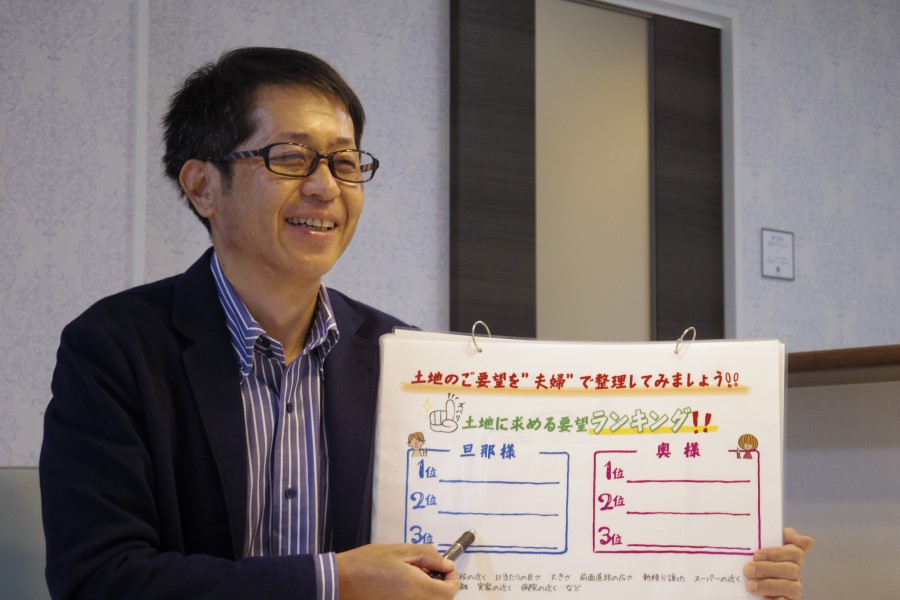 土地のご要望を"夫婦"で整理してみましょう!!
ズバリ
土地に求める要望ランキング!!
旦那様
1位
2位
3位
奥様
1位
2位
3位
校の近く 日当たりの良さ 大きさ 前面道路の広さ 新規分譲地 スーパーの近く
実家の近く 病院の近く など